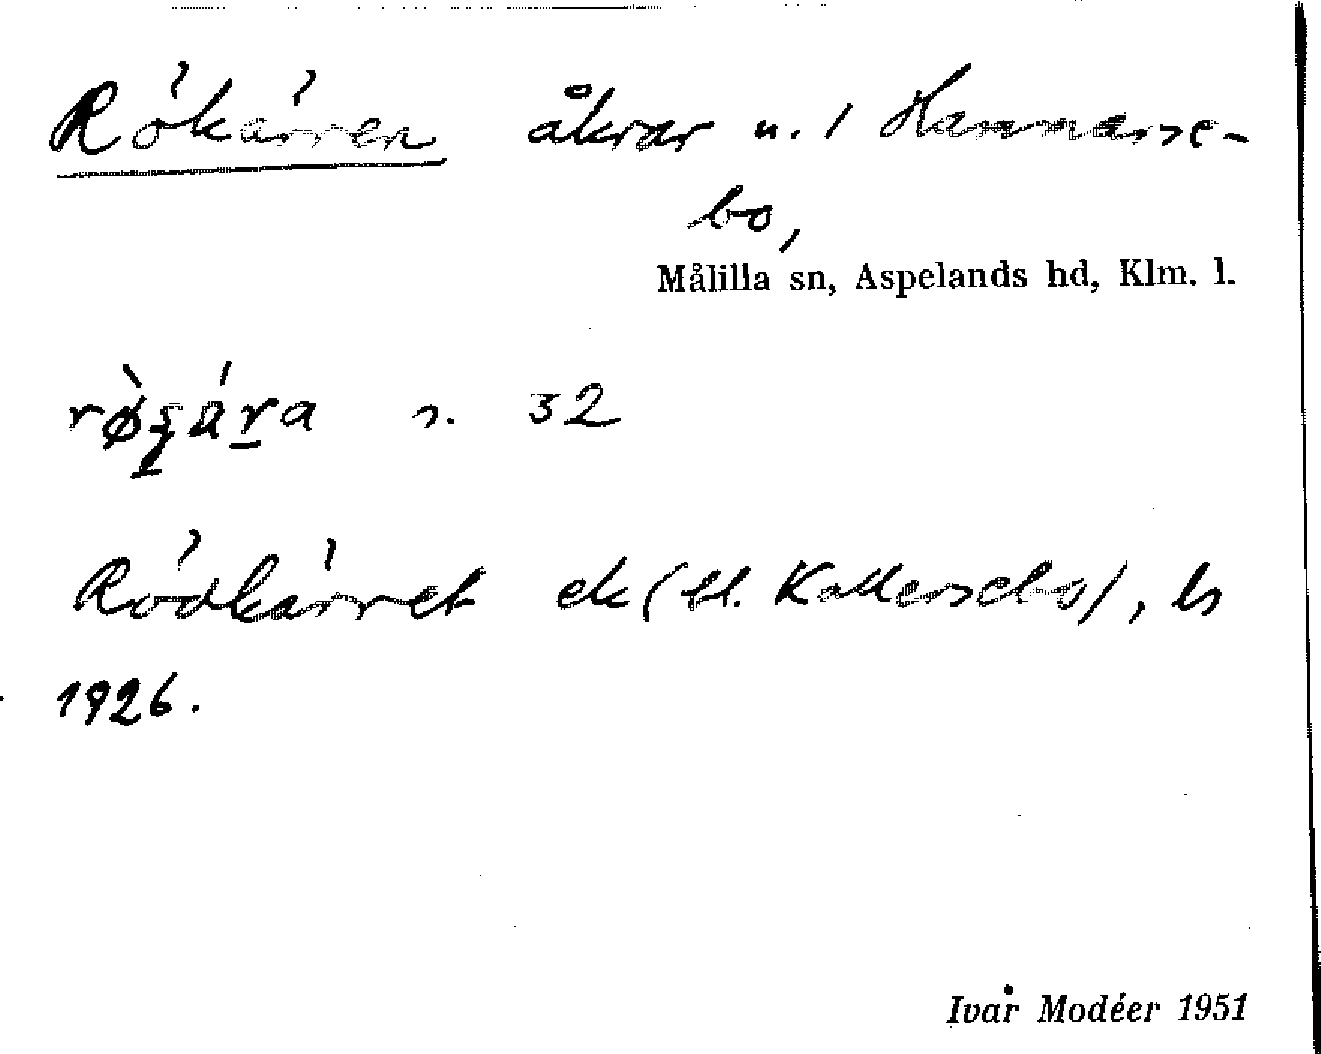 Rökärren åkrar u. / Hammarse-
bo,
Målilla sn, Aspelands hd, Klm. l.
n. 32
Rödkärret ek (bl. Kallersebo), ls
1926.
Ivar Modéer 1951